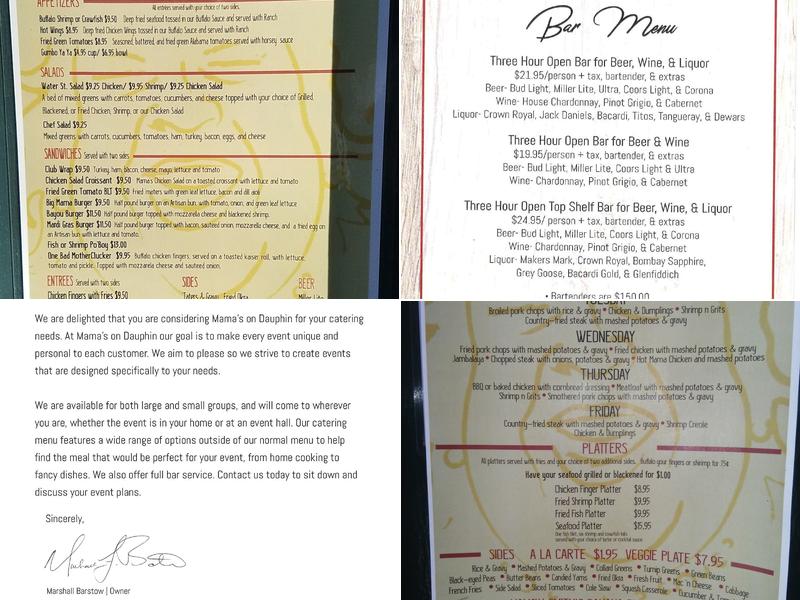 APPETIZERS
All entrees served with your choice of two sides.
Buffalo Shrimp or Crawfish $9.50 Deep fried seafood tossed in our Buffalo Sauce and served with Ranch
Hot Wings $8.95 Deep fried Chicken Wings tossed in our Buffalo Sauce and served with Ranch
Fried Green Tomatoes $8.95 Seasoned, battered, and fried green Alabama tomatoes served with horsey sauce
Gumbo Ya Ya $4.95 cup/ $6.95 bowl
SALADS
Water St. Salad $9.25 Chicken/ $9.95 Shrimp/ $9.25 Chicken Salad
A bed of mixed greens with carrots, tomatoes, cucumbers, and cheese topped with your choice of Grilled,
Blackened, or Fried Chicken, Shrimp, or our Chicken Salad
Chef Salad $9.25
Mixed greens with carrots, cucumbers, tomatoes, ham, turkey, bacon, eggs, and cheese
SANDWICHES Served with two sides
Club Wrap $9.50 Turkey, ham, bacon, cheese, mayo, lettuce and tomato
Chicken Salad Croissant $9.50 Mama's Chicken Salad on a toasted croissant with lettuce and tomato
Fried Green Tomato BLT $9.50 Fried 'maters with green leaf lettuce, bacon and dill aioli
Big Mama Burger $9.50 Half pound burger on an Artisan bun, with tomato, onion, and green leaf lettuce
Bayou Burger $11.50 Half pound burger topped with mozzarella cheese and blackened shrimp.
Mardi Gras Burger $11.50 Half pound burger topped with bacon, sauteed onion, mozzarella cheese, and a fried egg on
an Artisan bun with lettuce and tomato.
Fish or Shrimp Po'Boy $13.00
One Bad MotherClucker $9.95 Buffalo chicken fingers, served on a toasted kaiser roll, with lettuce,
tomato and pickle. Topped with mozzarella cheese and sauteed onion.
ENTREES Served with two sides
SIDES
BEER
Chicken Fingers with Fries $9.50
Taters & Gravy, Fried Okra
Miller Lite
Bar Menu
Three Hour Open Bar for Beer, Wine, & Liquor
$21.95/person + tax, bartender, & extras
Beer- Bud Light, Miller Lite, Ultra, Coors Light, & Corona
Wine- House Chardonnay, Pinot Grigio, & Cabernet
Liquor- Crown Royal, Jack Daniels, Bacardi, Titos, Tangueray, & Dewars
Three Hour Open Bar for Beer & Wine
$19.95/person + tax, bartender, & extras
Beer- Bud Light, Miller Lite, Coors Light & Ultra
Wine- Chardonnay, Pinot Grigio, & Cabernet
Three Hour Open Top Shelf Bar for Beer, Wine, & Liquor
$24.95/ person + tax, bartender, & extras
Beer- Bud Light, Miller Lite, Coors Light, & Corona
Wine- Chardonnay, Pinot Grigio, & Cabernet
Liquor- Makers Mark, Crown Royal, Bombay Sapphire,
Grey Goose, Bacardi Gold, & Glenfiddich
• Bartenders are $150.00
We are delighted that you are considering Mama's on Dauphin for your catering
needs. At Mama's on Dauphin our goal is to make every event unique and
personal to each customer. We aim to please so we strive to create events
that are designed specifically to your needs.
We are available for both large and small groups, and will come to wherever
you are, whether the event is in your home or at an event hall. Our catering
menu features a wide range of options outside of our normal menu to help
find the meal that would be perfect for your event, from home cooking to
fancy dishes. We also offer full bar service. Contact us today to sit down and
discuss your event plans.
Sincerely,
Marshall Barstow | Owner
TUESDAY
Broiled pork chops with rice & gravy • Chicken & Dumplings • Shrimp n Grits
Country-fried steak with mashed potatoes & gravy
WEDNESDAY
Fried pork chops with mashed potatoes & gravy • Fried chicken with mashed potatoes & gravy
Jambalaya • Chopped steak with onions, potatoes & gravy • Hot Mama Chicken and mashed potatoes
THURSDAY
BBQ or baked chicken with cornbread dressing • Meatloaf with mashed potatoes & gravy
Shrimp n Grits • Smothered pork chops with mashed potatoes & gravy
FRIDAY
Country-fried steak with mashed potatoes & gravy • Shrimp Creole
Chicken & Dumplings
PLATTERS
All platters served with fries and your choice of two additional sides. Buffalo your fingers or shrimp for 75¢
Have your seafood grilled or blackened for $1.00
Chicken Finger Platter $8.95
Fried Shrimp Platter $9.95
Fried Fish Platter $9.95
Seafood Platter $15.95
One fish filet, six shrimp and crawfish tails
served with your choice of tarter or cocktail sauce
SIDES A LA CARTE $1.95 VEGGIE PLATE $7.95
Rice & Gravy • Mashed Potatoes & Gravy • Collard Greens • Turnip Greens • Green Beans
Black-eyed Peas • Butter Beans • Candied Yams • Fried Okra • Fresh Fruit • Mac 'n Cheese • Cabbage
French Fries • Side Salad • Sliced Tomatoes • Cole Slaw • Squash Casserole • Cucumber &